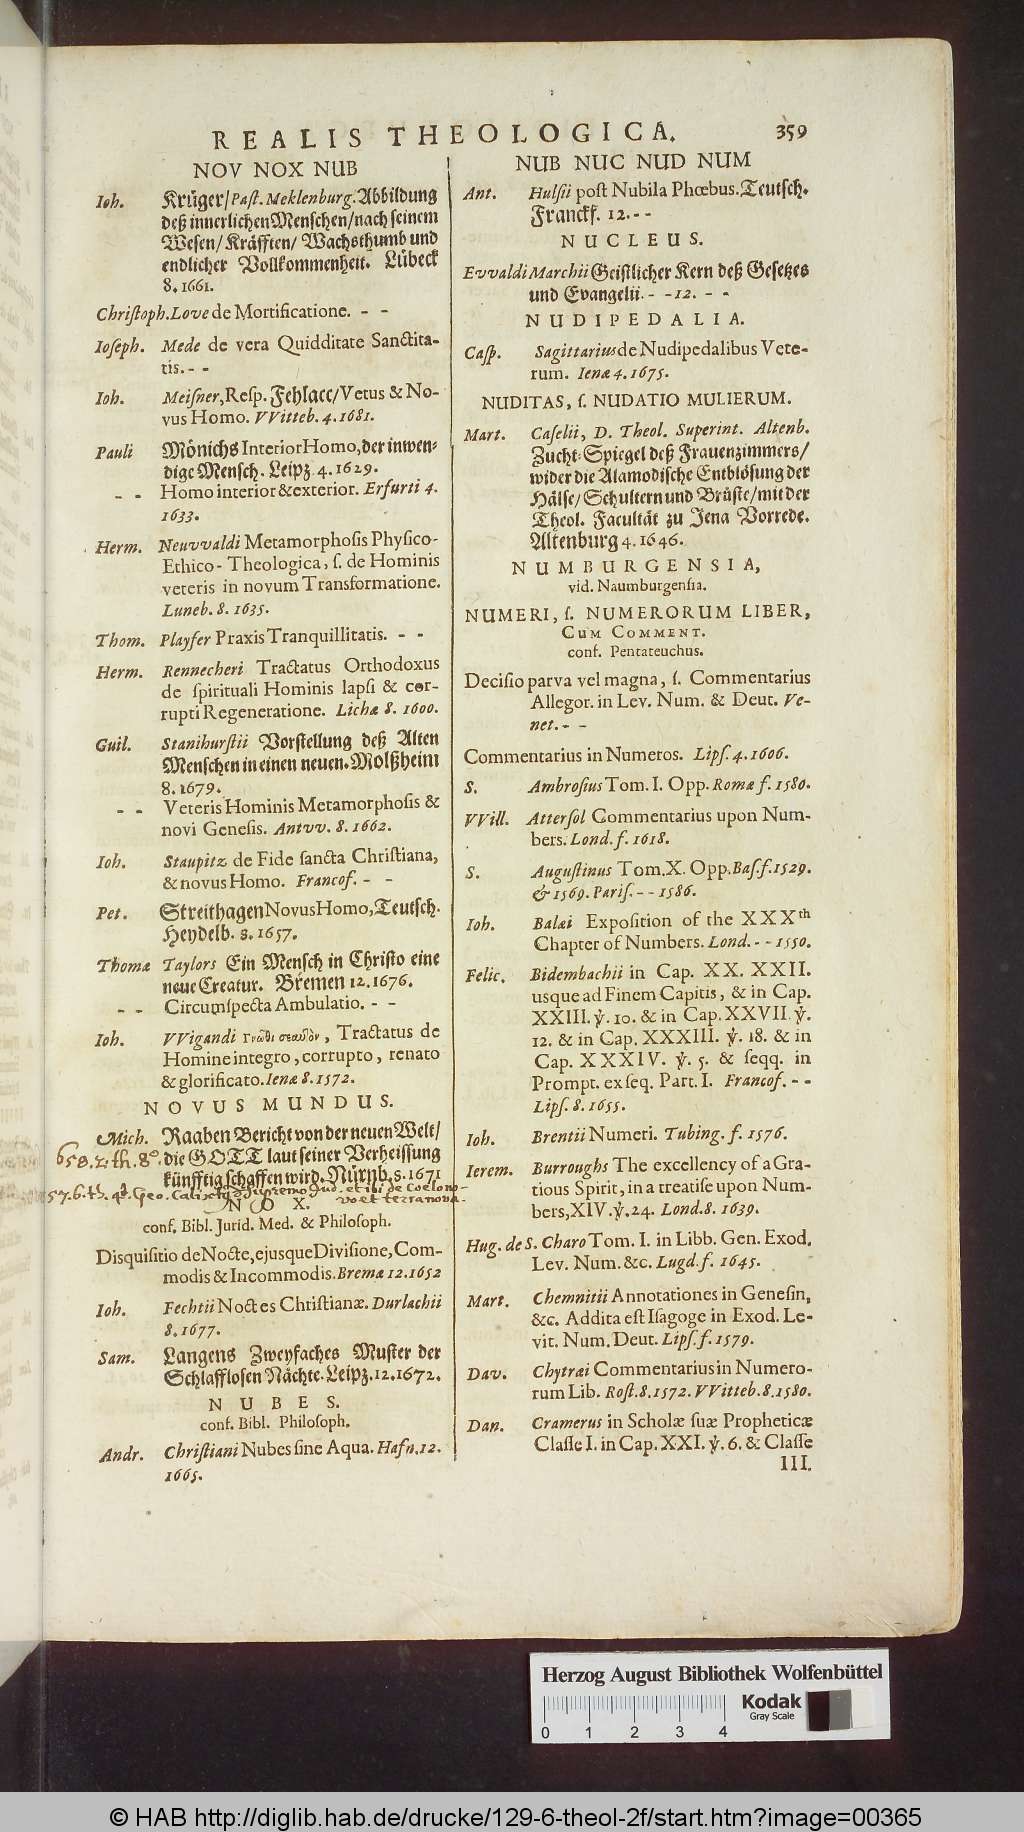 REALIS THEOLOGICA. 359
NOV NOX NUB
Ioh. Krüger/ Past. Meklenburg. Abbildung
deß innerlichen Menschen/ nach seinem
Wesen/ Kräfften/ Wachsthumb und
endlicher Vollkommenheit. Lübeck
8. 1661.
Christoph. Love de Mortificatione. - -
Ioseph. Mede de vera Quidditate Sanctita-
tis. - -
Ioh. Meisner, Resp. Fehlacc/ Vetus & No-
vus Homo. VVitteb. 4. 1681.
Pauli Mönichs Interior Homo, der inwen-
dige Mensch. Leipz. 4. 1629.
- - Homo interior & exterior. Erfurti 4.
1633.
Herm. Neuvvaldi Metamorphosis Physico-
Ethico-Theologica, s. de Hominis
veteris in novum Transformatione.
Luneb. 8. 1635.
Thom. Playfer Praxis Tranquillitatis. - -
Herm. Rennecheri Tractatus Orthodoxus
de spirituali Hominis lapsi & cor-
rupti Regeneratione. Lichæ 8. 1600.
Guil. Stanihurstii Vorstellung deß Alten
Menschen in einen neuen. Molßheim
8. 1679.
- - Veteris Hominis Metamorphosis &
novi Genesis. Antvv. 8. 1662.
Ioh. Staupitz de Fide sancta Christiana,
& novus Homo. Francof. - -
Pet. Streithagen Novus Homo, Teutsch.
Heydelb. 8. 1657.
Thomæ Taylors Ein Mensch in Christo eine
neue Creatur. Bremen 12. 1676.
- - Circumspecta Ambulatio. - -
Ioh. VVigandi Γνῶθι σεαυτὸν, Tractatus de
Homine integro, corrupto, renato
& glorificato. Ienæ 8. 1572.
NOVUS MUNDUS.
Mich. Raaben Bericht von der neuen Welt/
658.2. th. 8o. die GOTT laut seiner Verheissung
künfftig schaffen wird. Nürnb. 8. 1671
57.6. th. 4o. Geo. Calixtus de supremo Jud. et ibi de Coelo no-
vo et terra nova.
NOX.
conf. Bibl. Jurid. Med. & Philosoph.
Disquisitio de Nocte, ejusque Divisione, Com-
modis & Incommodis. Bremæ 12. 1652
Ioh. Fechtii Noctes Christianæ. Durlachii
8. 1677.
Sam. Langens Zweyfaches Muster der
Schlafflosen Nächte. Leipz. 12. 1672.
NUBES.
conf. Bibl. Philosoph.
Andr. Christiani Nubes sine Aqua. Hafn. 12.
1665.
NUB NUC NUD NUM
Ant. Hulsii post Nubila Phœbus. Teutsch.
Franckf. 12. - -
NUCLEUS.
Evvaldi Marchii Geistlicher Kern deß Gesetzes
und Evangelii. - - 12. - -
NUDIPEDALIA.
Casp. Sagittarius de Nudipedalibus Vete-
rum. Ienæ 4. 1675.
NUDITAS, s. NUDATIO MULIERUM.
Mart. Caselii, D. Theol. Superint. Altenb.
Zucht-Spiegel deß Frauenzimmers/
wider die Alamodische Entblösung der
Hälse/ Schultern und Brüste/ mit der
Theol. Facultät zu Jena Vorrede.
Altenburg 4. 1646.
NUMBURGENSIA,
vid. Naumburgensia.
NUMERI, s. NUMERORUM LIBER,
CUM COMMENT.
conf. Pentateuchus.
Decisio parva vel magna, s. Commentarius
Allegor. in Lev. Num. & Deut. Ve-
net. - -
Commentarius in Numeros. Lips. 4. 1606.
S. Ambrosius Tom. I. Opp. Romæ f. 1580.
VVill. Attersol Commentarius upon Num-
bers. Lond. f. 1618.
S. Augustinus Tom. X. Opp. Bas. f. 1529.
& 1569. Paris. - - 1586.
Ioh. Balæi Exposition of the XXXth
Chapter of Numbers. Lond. - - 1550.
Felic. Bidembachii in Cap. XX. XXII.
usque ad Finem Capitis, & in Cap.
XXIII. ℣. 10. & in Cap. XXVII. ℣.
12. & in Cap. XXXIII. ℣. 18. & in
Cap. XXXIV. ℣. 5. & seqq. in
Prompt. ex seq. Part. I. Francof. - -
Lips. 8. 1655.
Ioh. Brentii Numeri. Tubing. f. 1576.
Ierem. Burroughs The excellency of a Gra-
tious Spirit, in a treatise upon Num-
bers, XIV. ℣. 24. Lond. 8. 1639.
Hug. de S. Charo Tom. I. in Libb. Gen. Exod.
Lev. Num. &c. Lugd. f. 1645.
Mart. Chemnitii Annotationes in Genesin,
&c. Addita est Isagoge in Exod. Le-
vit. Num. Deut. Lips. f. 1579.
Dav. Chytræi Commentarius in Numero-
rum Lib. Rost. 8. 1572. VVitteb. 8. 1580.
Dan. Cramerus in Scholæ suæ Propheticæ
Classe I. in Cap. XXI. ℣. 6. & Classe
III.
Herzog August Bibliothek Wolfenbüttel
0 1 2 3 4
Kodak
Gray Scale
© HAB http://diglib.hab.de/drucke/129-6-theol-2f/start.htm?image=00365